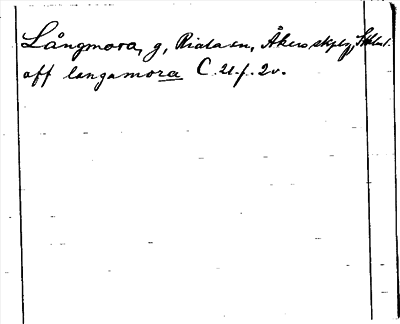 Långmora, g, Riala sn, Åkers skplg, Sthlms l.
aff langamora C. 21. f. 2v.